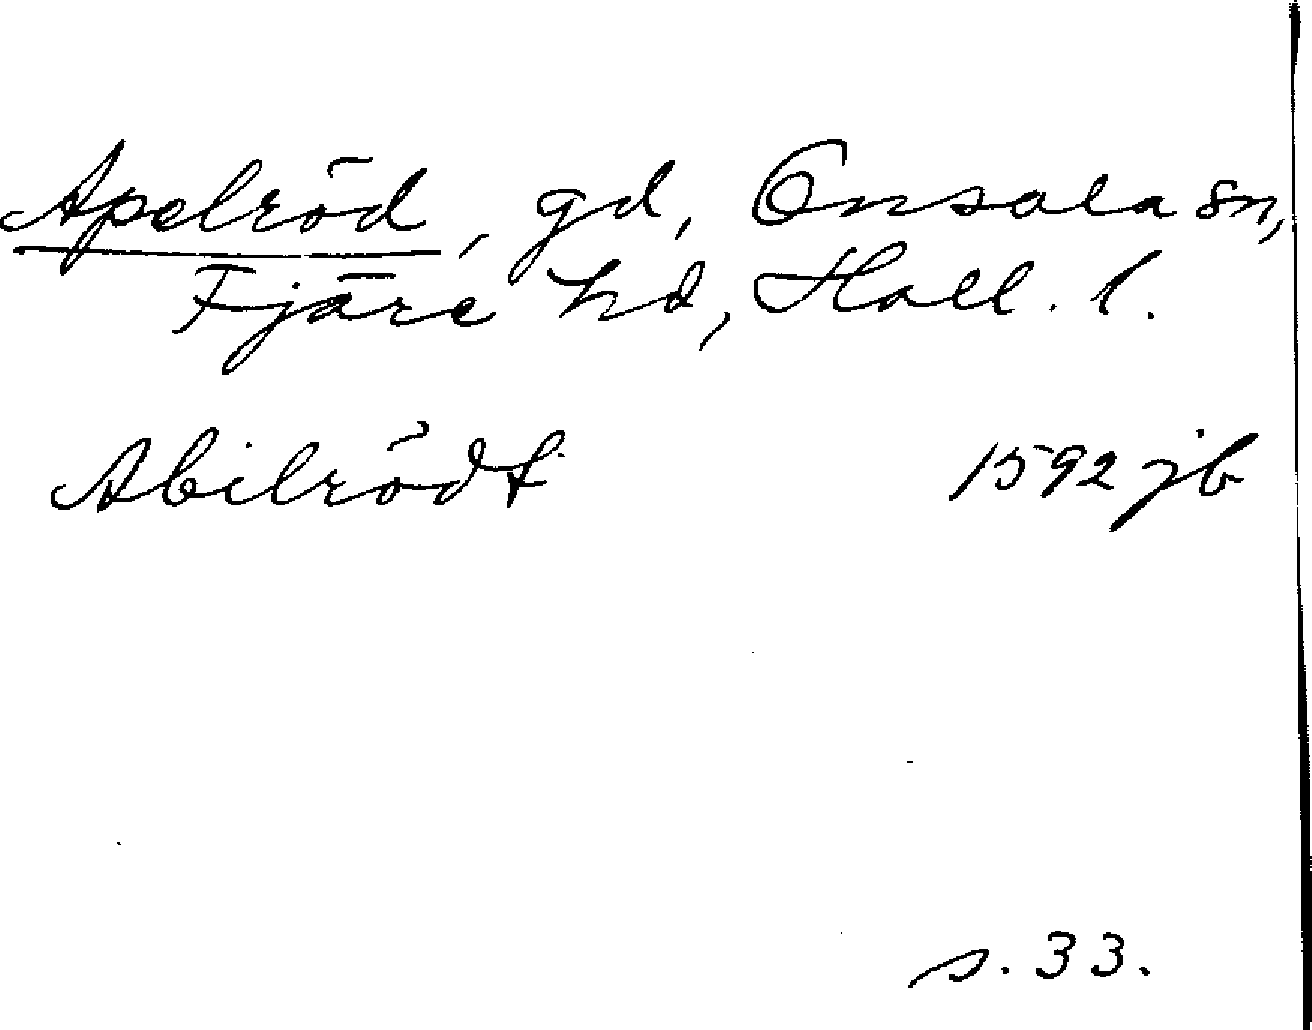 Apelröd, gd, Onsala sn,
Fjäre hd, Hall. l.
Abilrödt 1592 jb
s. 33.